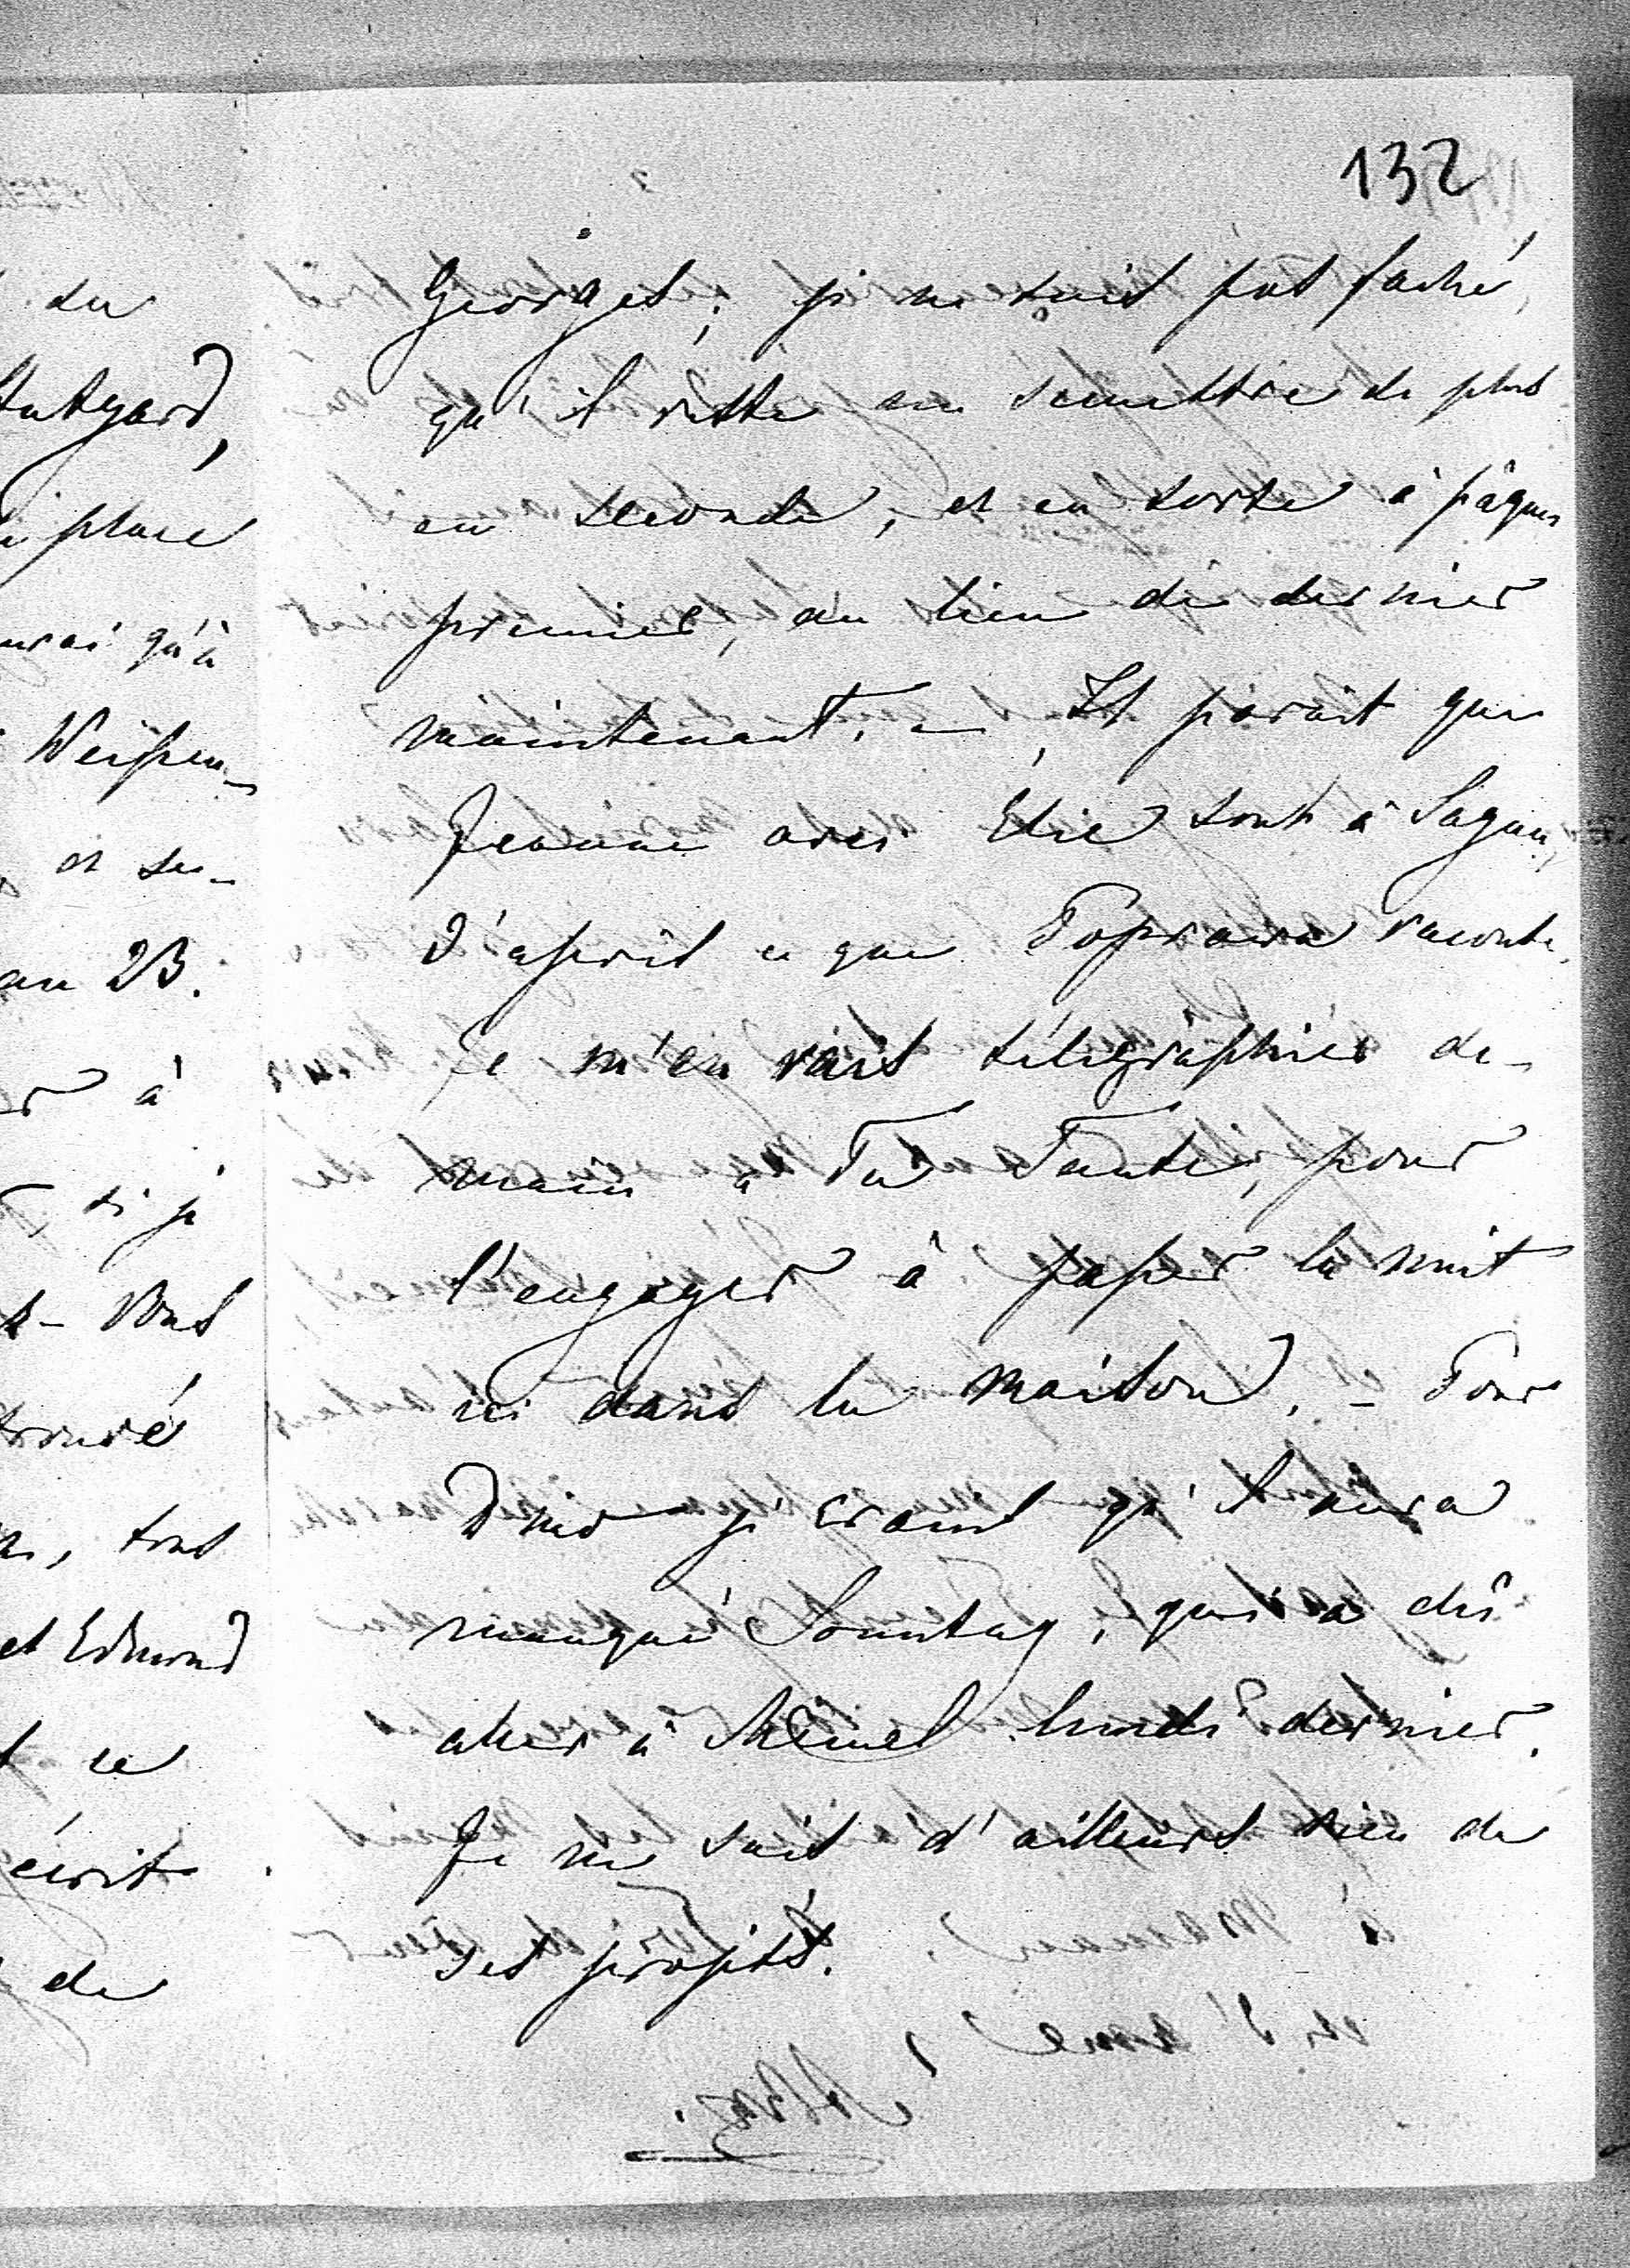 132
du
Stutgard,
place
qu'à
Weissen-
et se-
au 23.
à
si je
Vous
trouvé
tout
et Edmond
ce
écrit
de
Georges; je ne suis pas faché,
qu'il reste un semestre de plus
en seconde, et en sorte à pâques
premier, au lieu de dernier
maintenant. – Il parait que
Jeanne avec Elie sont à Sagan,
d'après ce que raconte.
Je m'en vais télégraphier de-
main à Ta Tante, pour
l'engager à passer la nuit
ici dans la maison. – Pour
je crains qu'il aura
manqué Sonntag, qui a dû
aller à Memel lundi dernier.
Je ne sais d'ailleurs rien de
ses projets.